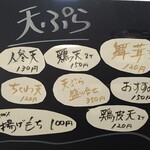 天ぷら
人参天
130円
鶏天
150円
舞茸
ちくわ天
130円
天ぷら
盛合せ
350円
おすすめ
揚げもち 100円
鶏皮天
120円